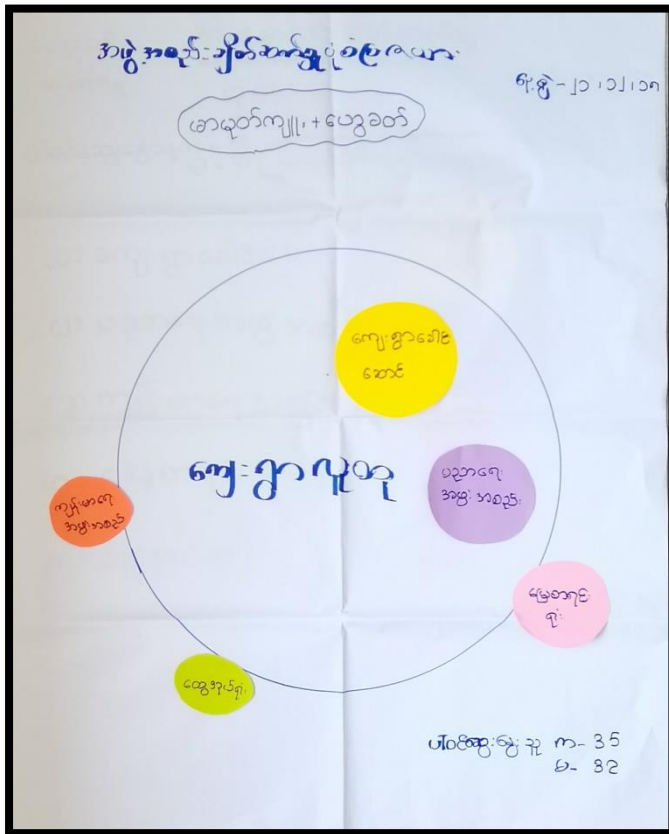 အဖွဲ့အစည်းချိတ်ဆက်မှုပုံစံပြဇယား
နေ့စွဲ - ၂၁.၁၂.၁၈
ကျေးရွာခေါင်း
ဆောင်
ကျေးရွာလူထု
ပညာရေး
အဖွဲ့အစည်း
ကျန်းမာရေး
အဖွဲ့အစည်း
မြေစာရင်း
ရုံး
ထွေအုပ်ရုံး
ပါဝင်ဆွေးနွေးသူ က- 35
မ- 32